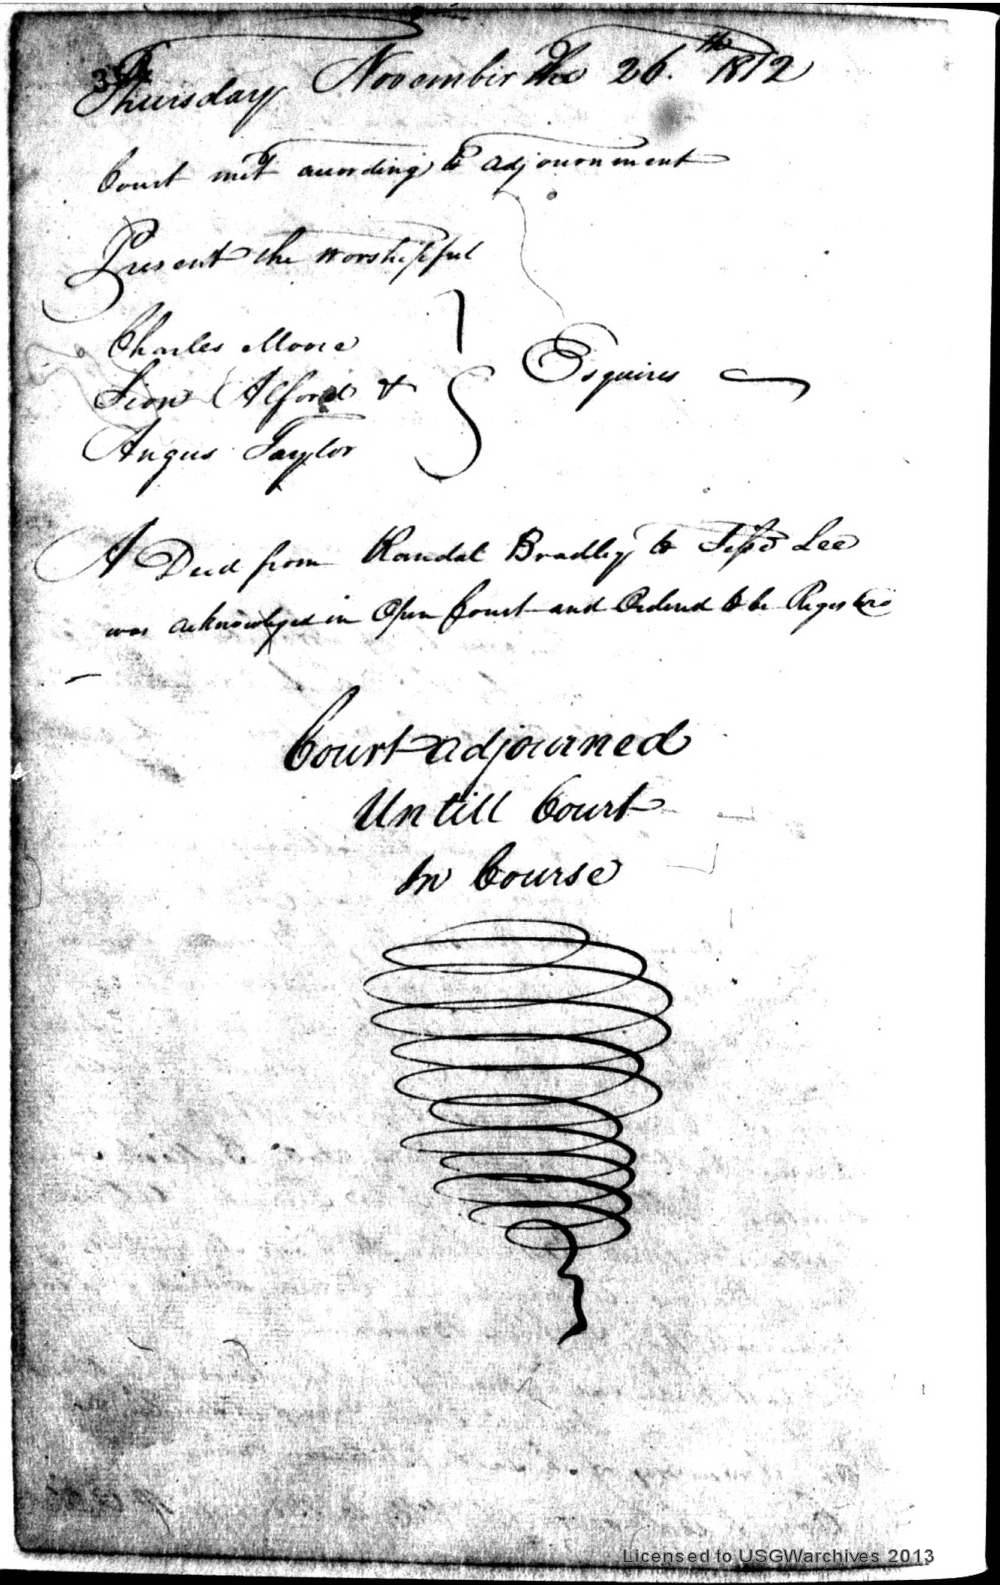 Thursday November the 26.th 1812
Court met acording to adjournment
Present the worshipful
Charles Moore
Sion Alford &
Angus Taylor
Esquires
A Deed from Randal Bradley to Jesse Lee
was acknowlged in Open Court and Ordered to be Registerd
Court adjourned
Untill Court
In Course
Licensed to USGWarchives 2013